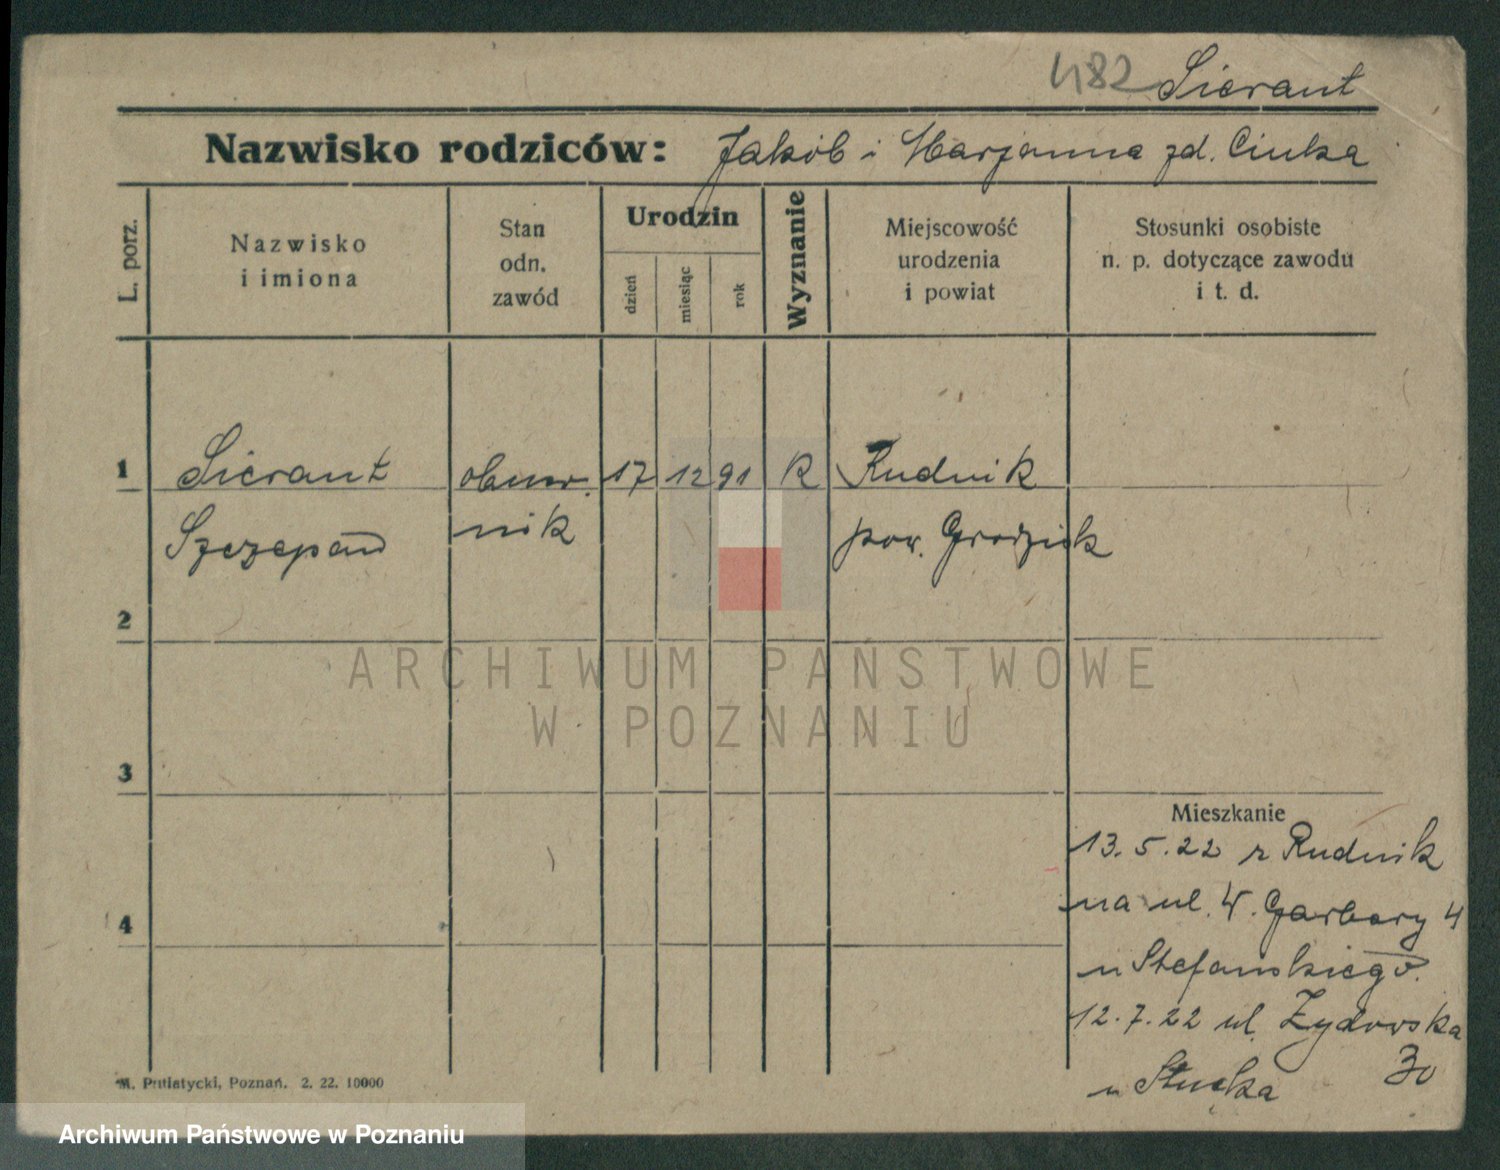 482 Sierant
Nazwisko rodziców: Jakób i Marjanna zd. Ciuka
L. porz.
Nazwisko
i imiona
Stan
odn.
zawód
Urodzin
dzień
miesiąc
rok
Wyznanie
Miejscowość
urodzenia
i powiat
Stosunki osobiste
n. p. dotyczące zawodu
i t. d.
1 Sierant obuw. 17 12 91 R Rudnik
Szczepan nik pow. Grodzisk
2
ARCHIWUM PAŃSTWOWE
W POZNANIU
3
Mieszkanie
13. 5. 22 z Rudnik
na ul. W. Garbary 4
4
u Stefanskiego.
12. 7. 22 ul. Zydowska
30
u Stucka
M. Putiatycki, Poznań. 2. 22. 10000
Archiwum Państwowe w Poznaniu